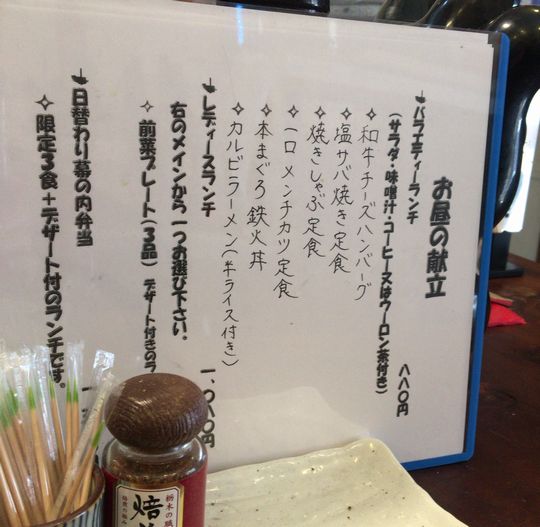 お昼の献立
バラエティーランチ 八八〇円
(サラダ・味噌汁・コーヒー又はウーロン茶付き)
✧ 和牛チーズハンバーグ
✧ 塩サバ焼き定食
✧ 焼きしゃぶ定食
✧ 一口メンチカツ定食
✧ 本まぐろ鉄火丼
✧ カルビラーメン(半ライス付き)
レディースランチ 一、〇八〇円
右のメインから一つお選び下さい。
✧ 前菜プレート(3品) デザート付きの
日替わり幕の内弁当
✧ 限定3食+デザート付のランチです。
栃木の
焙